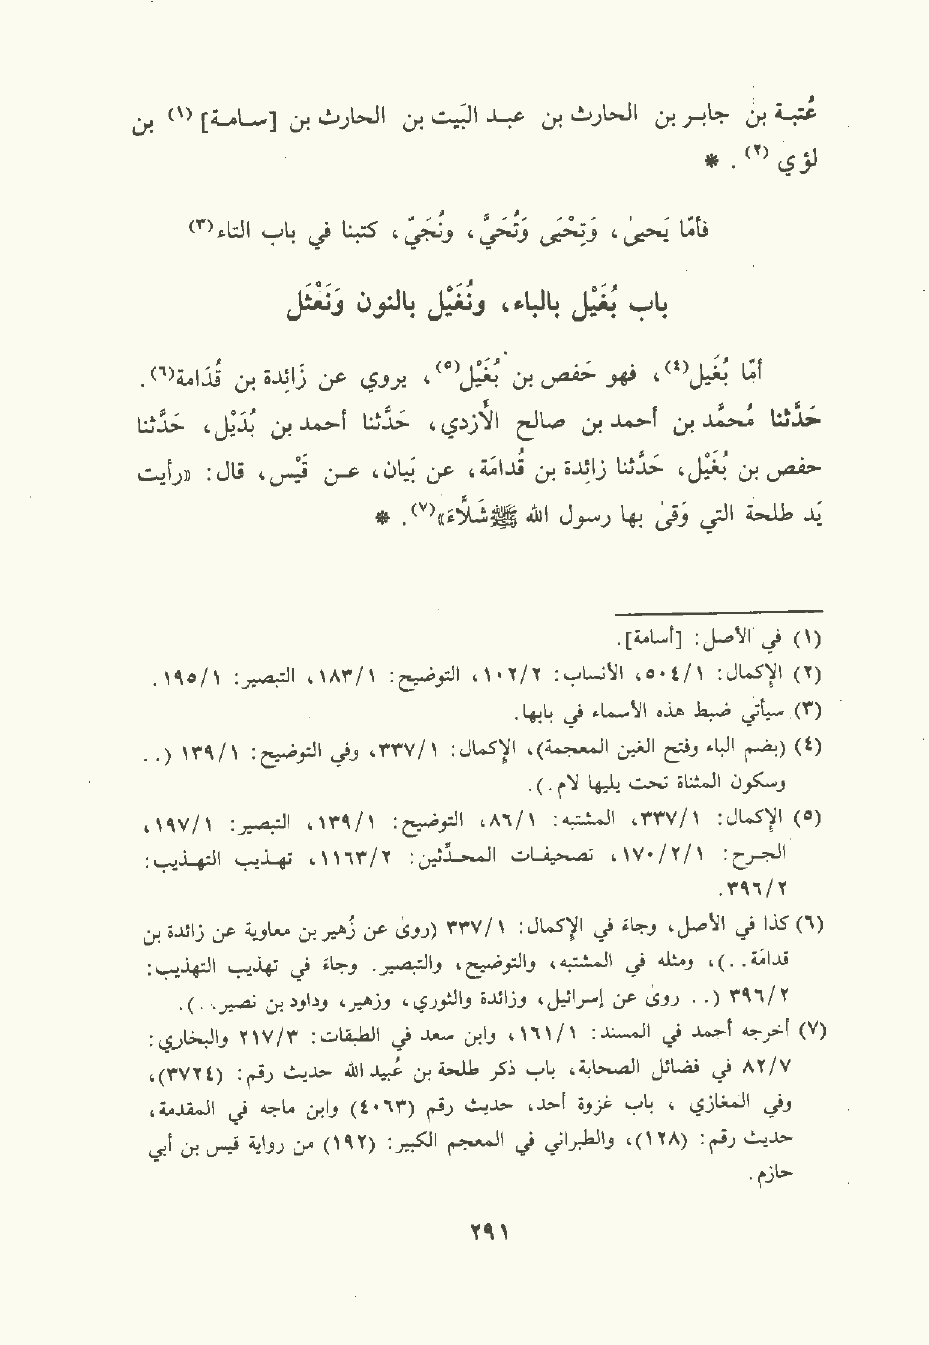 عُتبة بن جابر بن الحارث بن عبد البَيت بن الحارث بن [سامة] (١) بن
لؤي (٢) . *
فأمّا يَحيىٰ، وَتِحْيَى وَتُحَيّ، ونُجَيّ، كتبنا في باب التاء(٣)
باب بُغَيْل بالباء، ونُغَيْل بالنون وَنَعْثَل
أمّا بُغَيل(٤)، فهو حَفص بن بُغَيْل(٥)، يروي عن زائِدة بن قُدَامة(٦).
حَدَّثنا مُحمَّد بن أحمد بن صالح الأَزدي، حَدَّثنا أحمد بن بُدَيْل، حَدَّثنا
حفص بن بُغَيْل، حَدَّثنا زائِدة بن قُدامَة، عن بَيَان، عن قَيْس، قال: «رأيت
يَد طلحة التي وَقىٰ بها رسول الله ﷺ شَلاَّءَ»(٧). *
(١) في الأصل: [أسامة].
(٢) الإكمال: ٥٠٤/١، الأنساب: ١٠٢/٢، التوضيح: ١٨٣/١، التبصير: ١٩٥/١.
(٣) سيأتي ضبط هذه الأسماء في بابها.
(٤) (بضم الباء وفتح الغين المعجمة)، الإكمال: ٣٣٧/١، وفي التوضيح: ١٣٩/١ (..
وسكون المثناة تحت يليها لام.).
(٥) الإكمال: ٣٣٧/١، المشتبه: ٨٦/١، التوضيح: ١٣٩/١، التبصير: ١٩٧/١،
الجرح: ١٧٠/٢/١، تصحيفات المحدّثين: ١١٦٣/٢، تهذيب التهذيب:
٣٩٦/٢.
(٦) كذا في الأصل، وجاءَ في الإكمال: ٣٣٧/١ (روىٰ عن زُهير بن معاوية عن زائدة بن
قدامَة..)، ومثله في المشتبه، والتوضيح، والتبصير. وجاءَ في تهذيب التهذيب:
٣٩٦/٢ (.. روىٰ عن إسرائيل، وزائدة والثوري، وزهير، وداود بن نصير..).
(٧) أخرجه أحمد في المسند: ١٦١/١، وابن سعد في الطبقات: ٢١٧/٣ والبخاري:
٨٢/٧ في فضائل الصحابة، باب ذكر طلحة بن عُبيد الله حديث رقم: (٣٧٢٤)،
وفي المغازي ، باب غزوة أحد، حديث رقم (٤٠٦٣) وابن ماجه في المقدمة،
حديث رقم: (١٢٨)، والطبراني في المعجم الكبير: (١٩٢) من رواية قيس بن أبي
حازم.
٢٩١